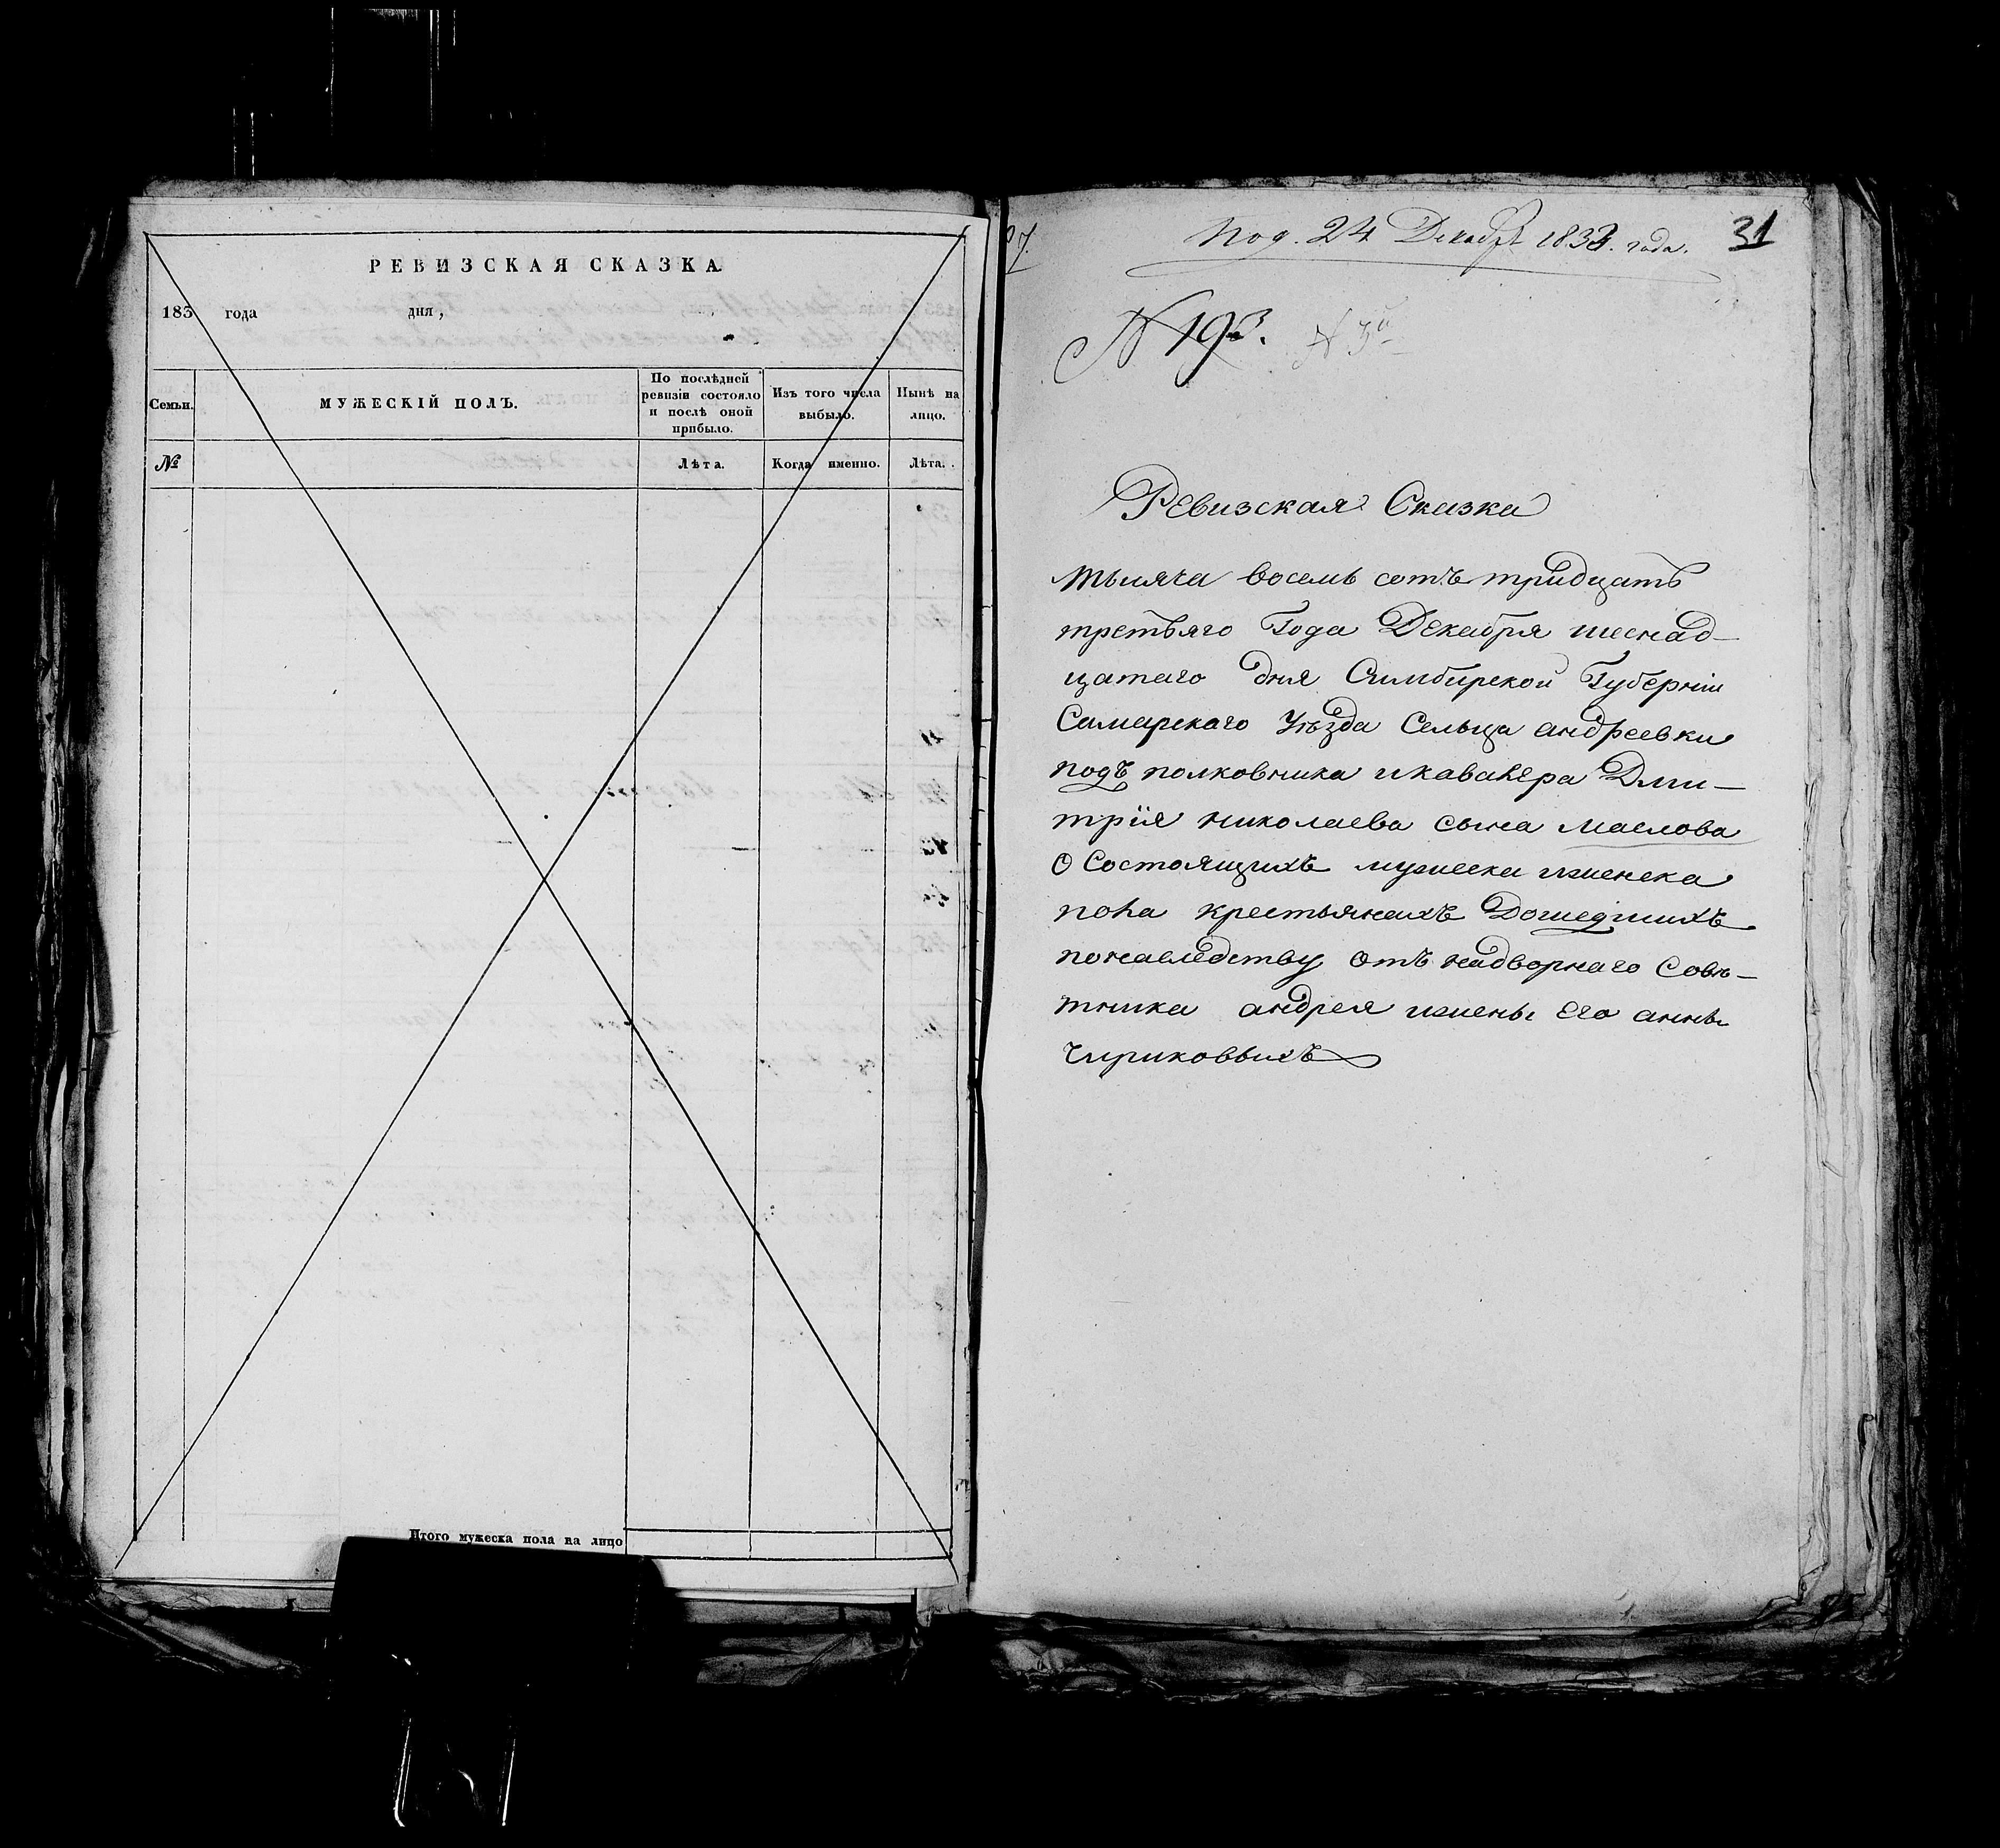 РЕВИЗСКАЯ СКАЗКА.
183 года дня,
Семьи.
МУЖЕСКІЙ ПОЛЪ.
По послѣдней
ревизіи состояло
и послѣ оной
прибыло.
Изъ того числа
выбыло.
Нынѣ на
лицо.
№
Лѣта.
Когда именно.
Лѣта.
Итого мужеска пола на лицо
Под. 24 Декабря 1833. года.
31
№ 193.
Ревизская Сказка
тысяча восемь сотъ тридцать
третьяго Года Декабря шеснад-
цатаго дня Симбирской Губерніи
Самарскаго Уѣзда Сельца андреевки
подъ полковника икавалера Дми-
трія николаева сына маслова
О Состоящихъ мужеска иженска
пола крестьянахъ Дошедшихъ
понаследству Отъ надворнаго Совѣ-
тника андрея ижены Его анны
Чириковыхъ